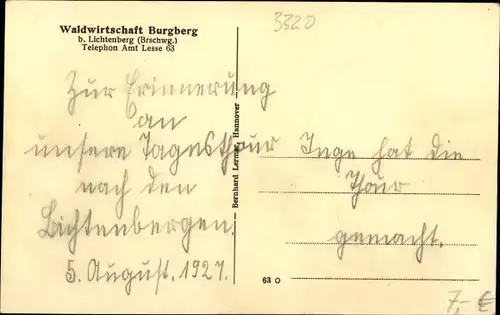 Waldwirtschaft Burgberg
b. Lichtenberg (Brschwg.)
Telephon Amt Lesse 63
3320
Zur Erinnerung
an
unsere Tagesthour
nach den
Lichtenbergen.
5. August. 1927.
Bernhard Lerche, Hannover
Inge hat die
Thour
gemacht.
63 O
7,- €